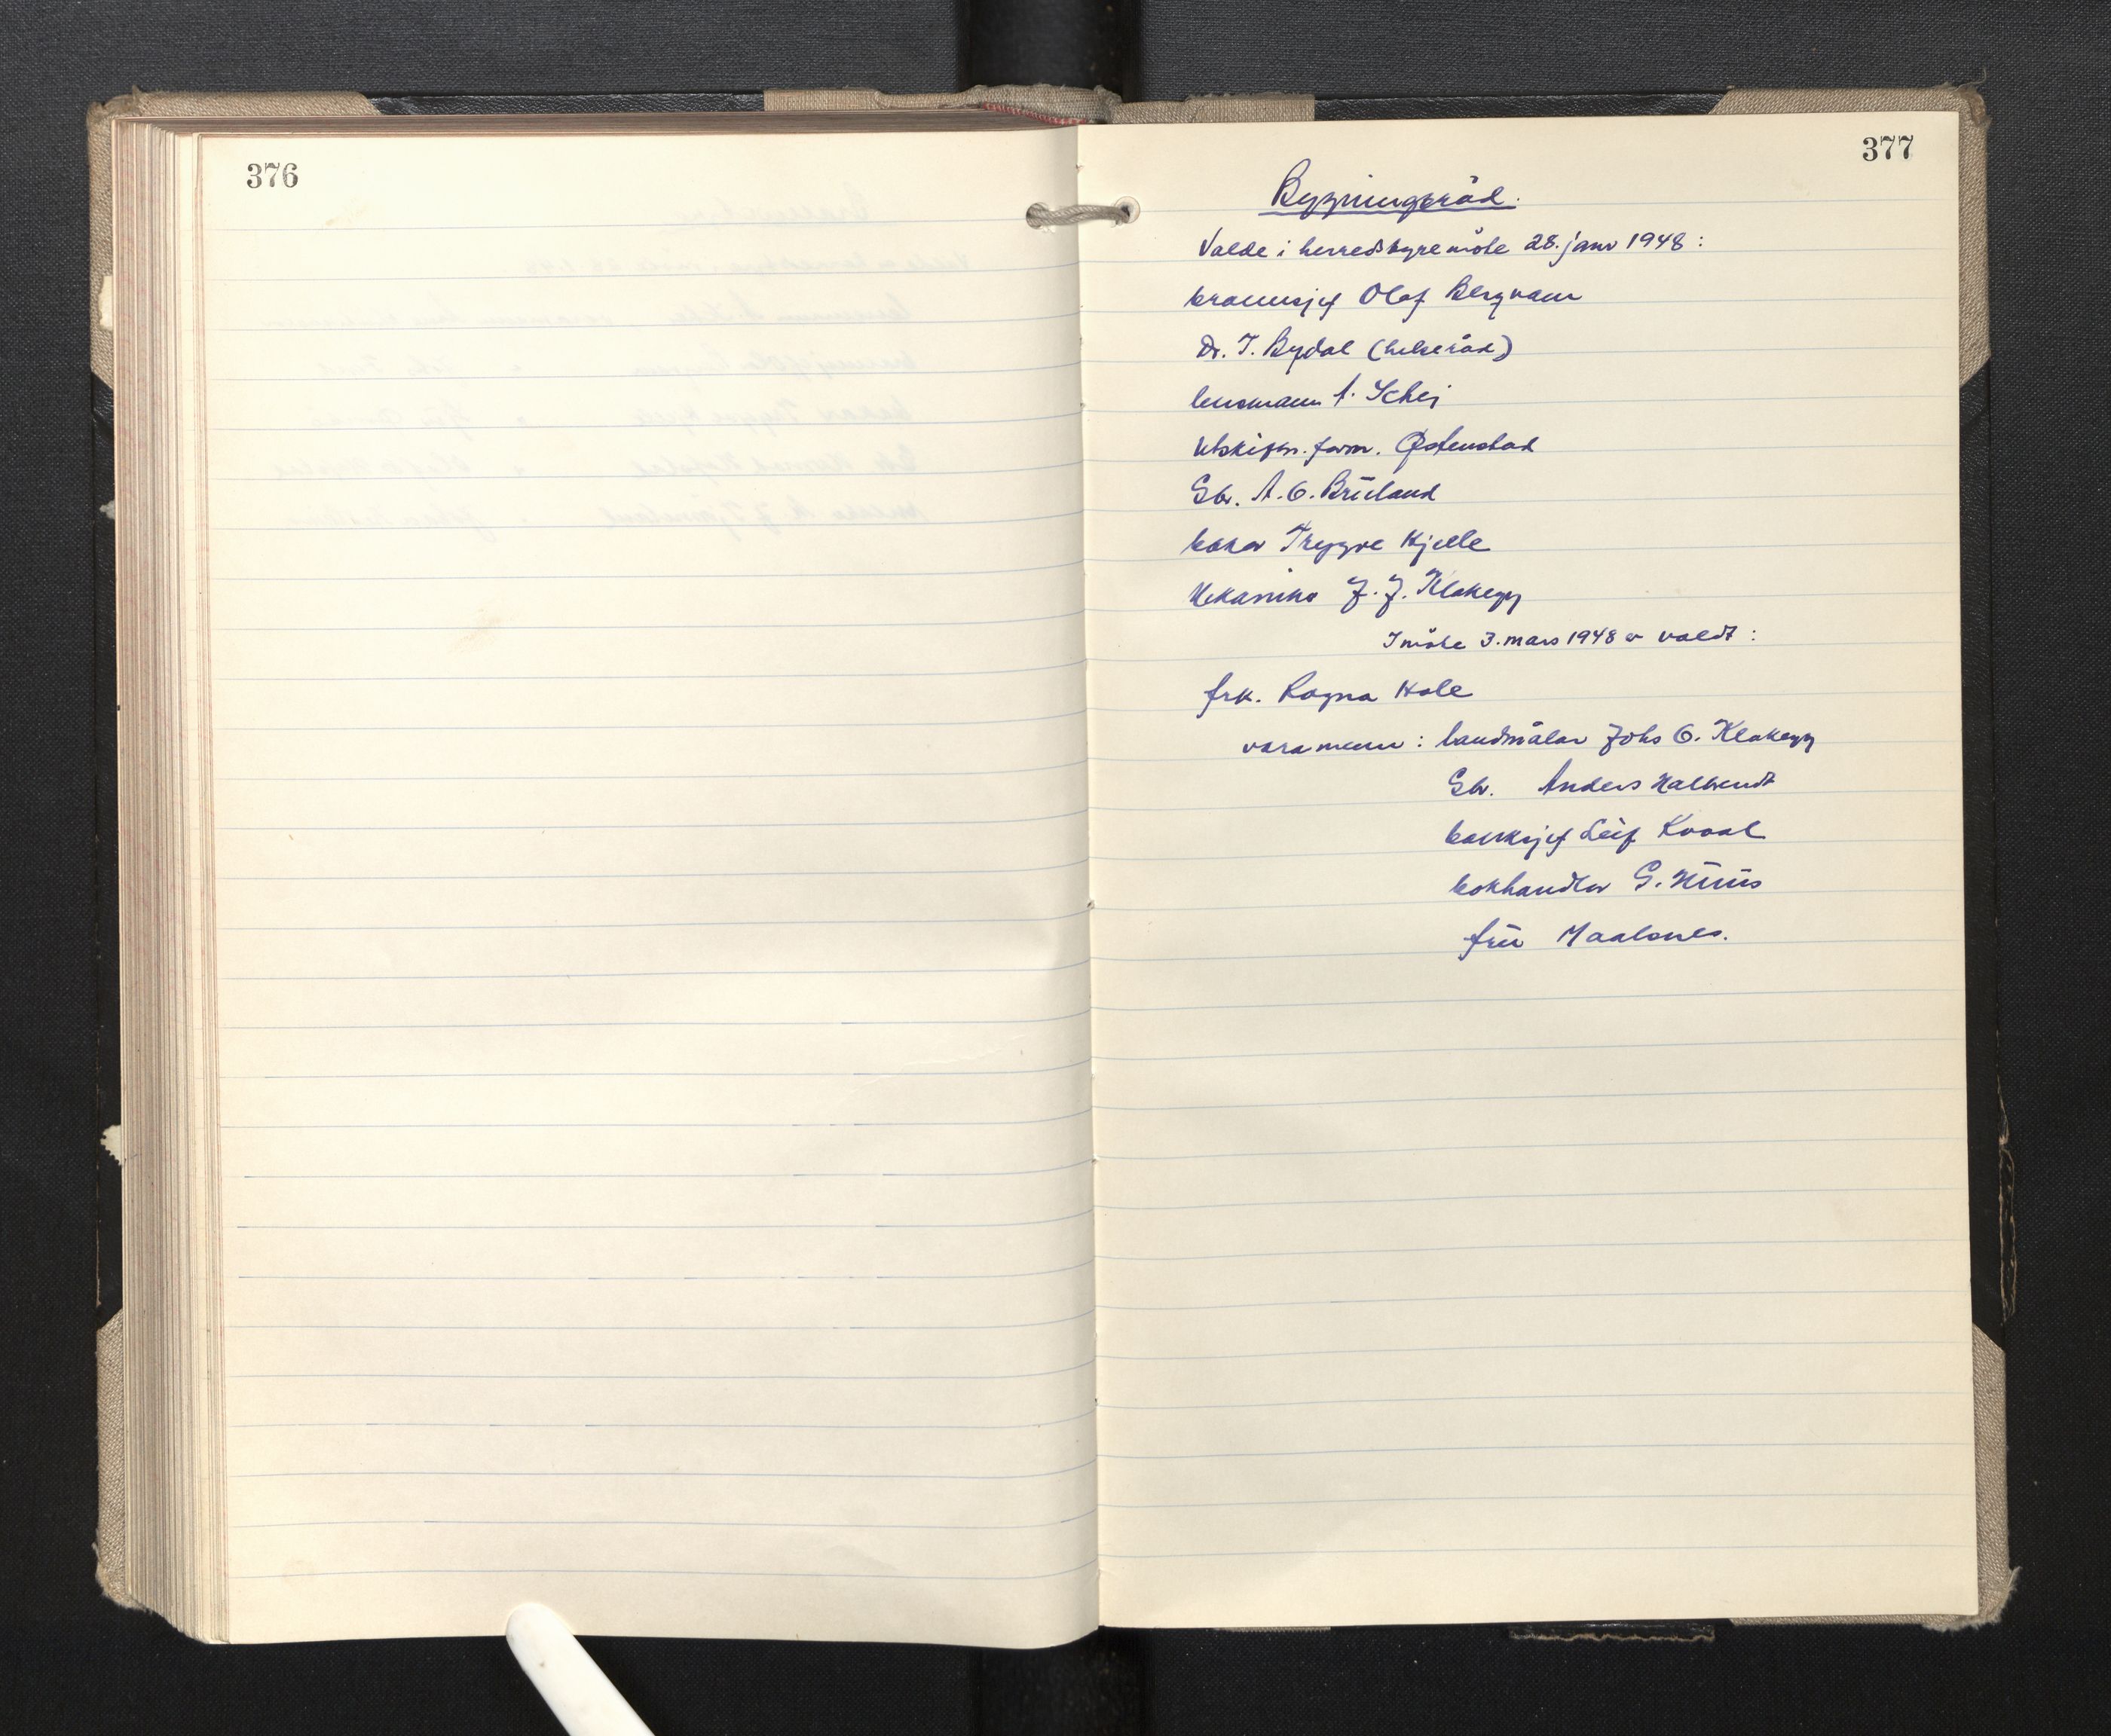 376
377
Bygningsråd.
Valde i herredstyremöte 28. janr 1948:
brannsjef Olaf Bergvam
Dr. T. Bydal (helseråd)
lensmann A. Schei
utskiftn.form. Østenstad
Gbr. A. O. Brüland
baker Trygve Kjelle
Mekanikr J. J. Klakegg
I möte 3. mars 1948 er valdt:
frk. Ragna Hole
varamenn: landmåler Johs O. Klakegg
Gbr. Anders Halbrendt
banksjef Leif Kvaal
bokhandler G. Hüüs
frü Maalsnes.